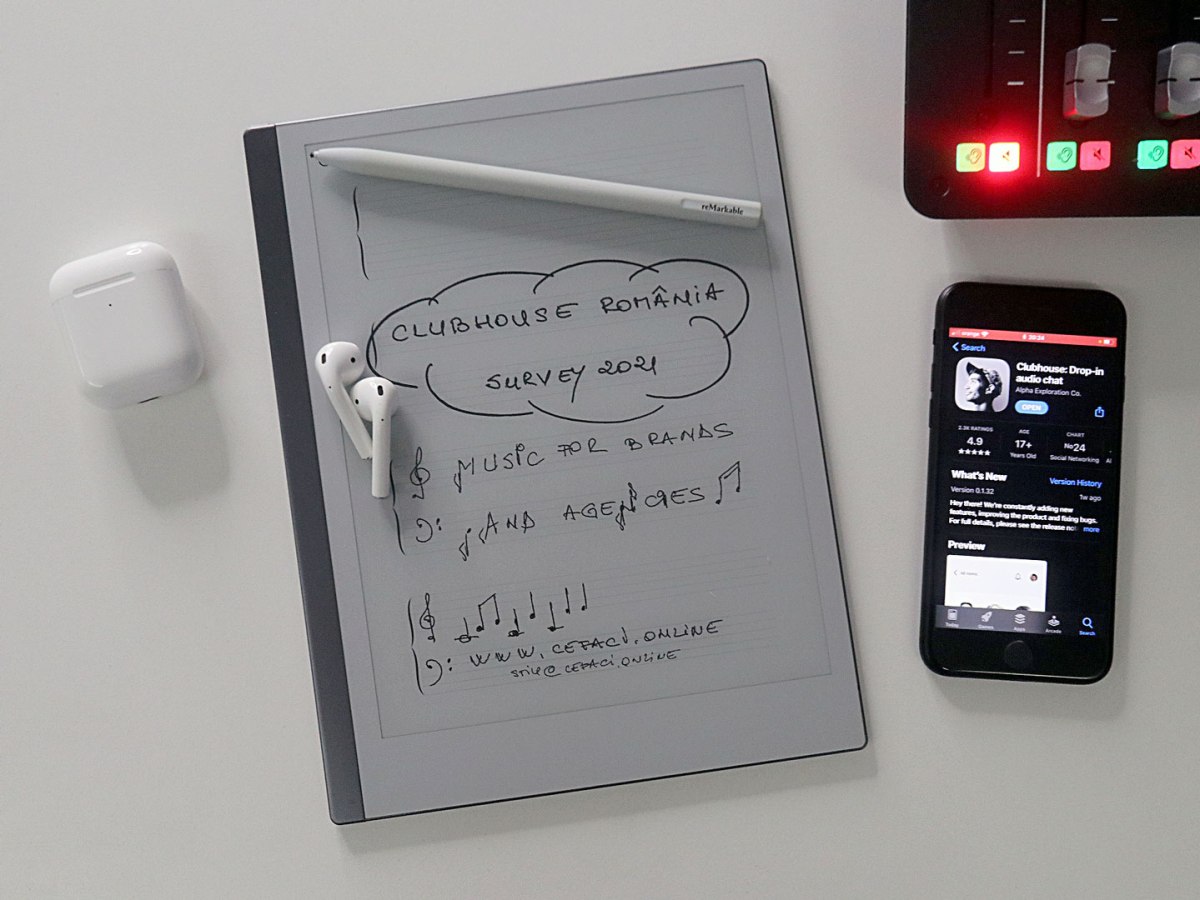 reMarkable
CLUBHOUSE ROMÂNIA
SURVEY 2021
MUSIC FOR BRANDS
AND AGENCIES
WWW.CEFACI.ONLINE
STIL@CEFACI.ONLINE
orange
Search
Clubhouse: Drop-in
audio chat
Alpha Exploration Co.
OPEN
2.3K RATINGS
AGE
CHART
4.9
17+
No24
★★★★★
Years Old
Social Networking
What's New
Version History
Version 0.1.32
1w ago
Hey there! We're constantly adding new
features, improving the product and fixing bugs.
For full details, please see the release no
more
Preview
Today
Games
Apps
Arcade
Search